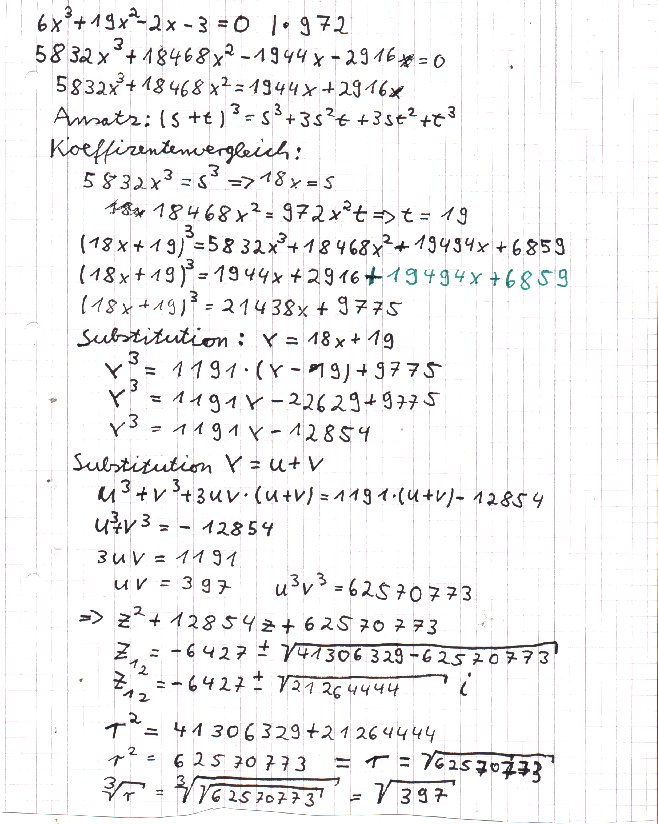 6x³+19x²-2x-3=0 |·972
5832x³+18468x²-1944x-2916=0
5832x³+18468x²=1944x+2916
Ansatz: (s+t)³=s³+3s²t+3st²+t³
Koeffizentenvergleich:
5832x³=s³=>18x=s
18468x²=972x²t=>t=19
(18x+19)³=5832x³+18468x²+19494x+6859
(18x+19)³=1944x+2916+19494x+6859
(18x+19)³=21438x+9775
Substitution: Y=18x+19
Y³=1191·(Y-19)+9775
Y³=1191Y-22629+9775
Y³=1191Y-12854
Substitution Y=u+v
u³+v³+3uv·(u+v)=1191·(u+v)-12854
u³+v³=-12854
3uv=1191
uv=397 u³v³=62570773
=> z²+12854z+62570773
z₁₂=-6427±√41306329-62570773
z₁₂=-6427±√21264444 i
r²=41306329+21264444
r²=62570773 = r=√62570773
∛r=∛√62570773=√397